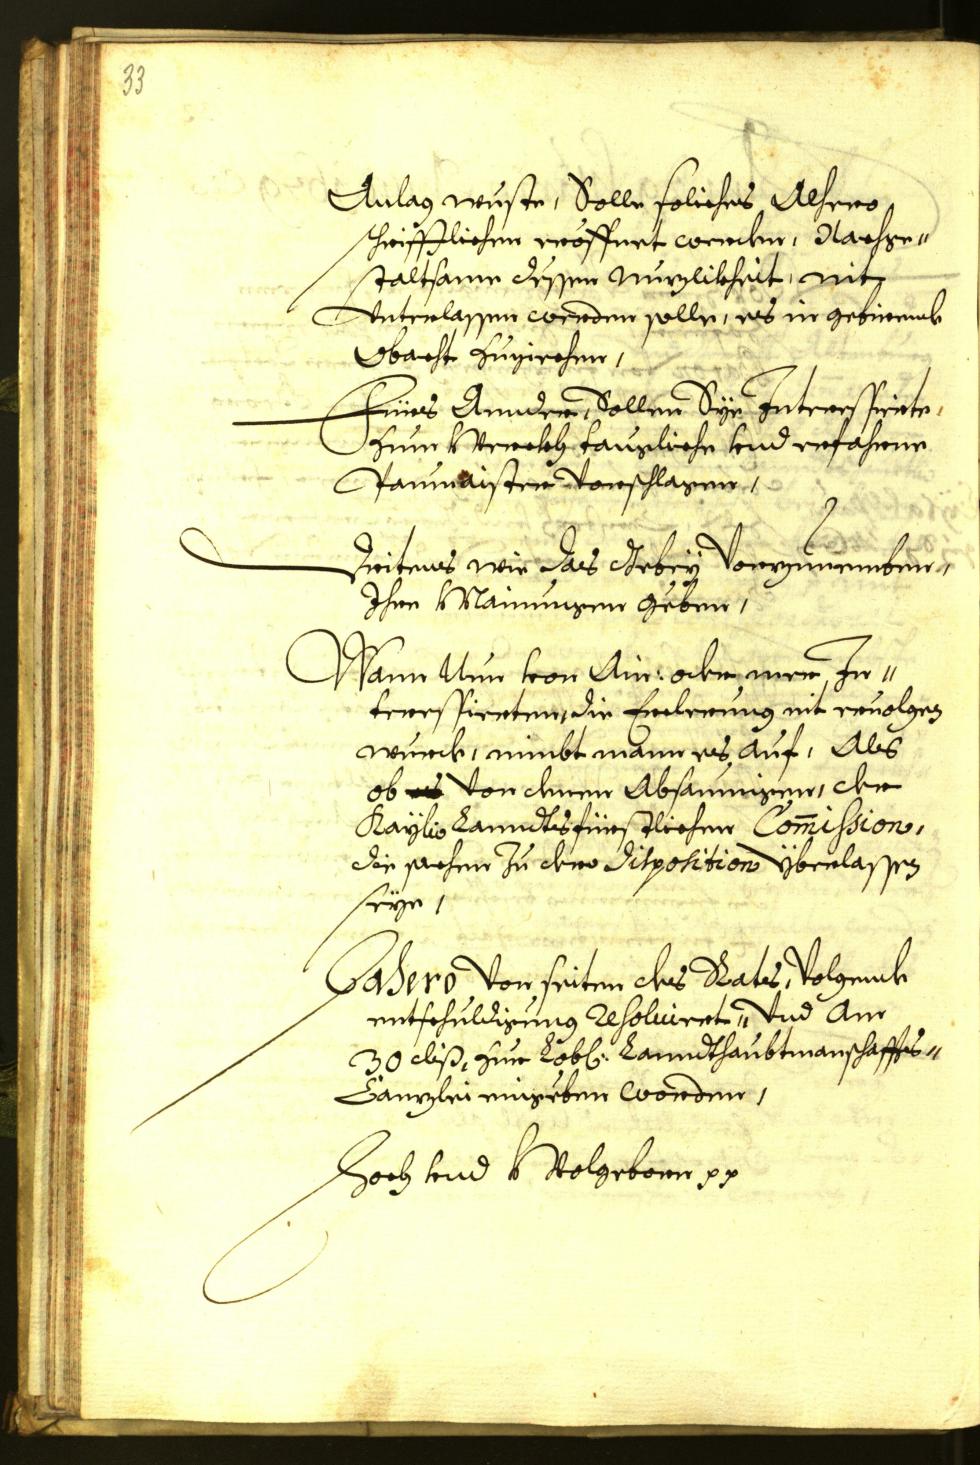 33
Anlag wuste, Solle soliches Alhero
schrifftlichen eröffnet werden, Nachge„
staltsame dessen nit
Unterlassen werden solle, es in gebirende
Obacht zuziechen,
Fürs Annder, Sollen Sye Interessierte,
zum Werckh taugliche und erfahrne
Paumaister vorschlagen,
Dritens wie das Gebey vorzunemben,
Ihre Mainungen geben,
Wann Nun von Ain: oder mer In„
teressierten, die Erclerung nit ervolgen
wurde, nimbt mann es auf, Als
ob von denen Absannigen, der
Kaÿl: Lanndtsfürstlichen Commission,
die sachen Zu dero disposition Überlassen
seye,
Dahero Von seiten des Rats, Volgende
entschuldigung resolviert„ Und Am
30 diß, zur Lobl: Lanndtshaubtmanschaffts„
Canzlei eingeben worden,
Hoch und Wolgeborn pp